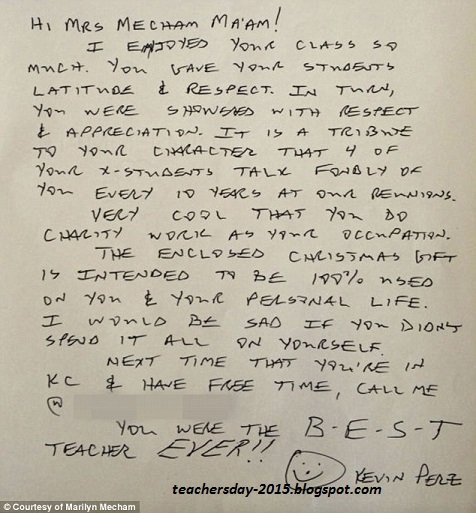 HI MRS MECHAM MA'AM!
I ENJOYED YOUR CLASS SO
MUCH. YOU GAVE YOUR STUDENTS
LATITUDE & RESPECT. IN TURN,
YOU WERE SHOWERED WITH RESPECT
& APPRECIATION. IT IS A TRIBUTE
TO YOUR CHARACTER THAT 4 OF
YOUR X-STUDENTS TALK FONDLY OF
YOU EVERY 10 YEARS AT OUR REUNIONS.
VERY COOL THAT YOU DO
CHARITY WORK AS YOUR OCCUPATION.
THE ENCLOSED CHRISTMAS GIFT
IS INTENDED TO BE 100% USED
ON YOU & YOUR PERSONAL LIFE.
I WOULD BE SAD IF YOU DIDN'T
SPEND IT ALL ON YOURSELF.
NEXT TIME THAT YOU'RE IN
KC & HAVE FREE TIME, CALL ME
@
YOU WERE THE B-E-S-T
TEACHER EVER!!
KEVIN PERZ
teachersday-2015.blogspot.com
© Courtesy of Marilyn Mecham